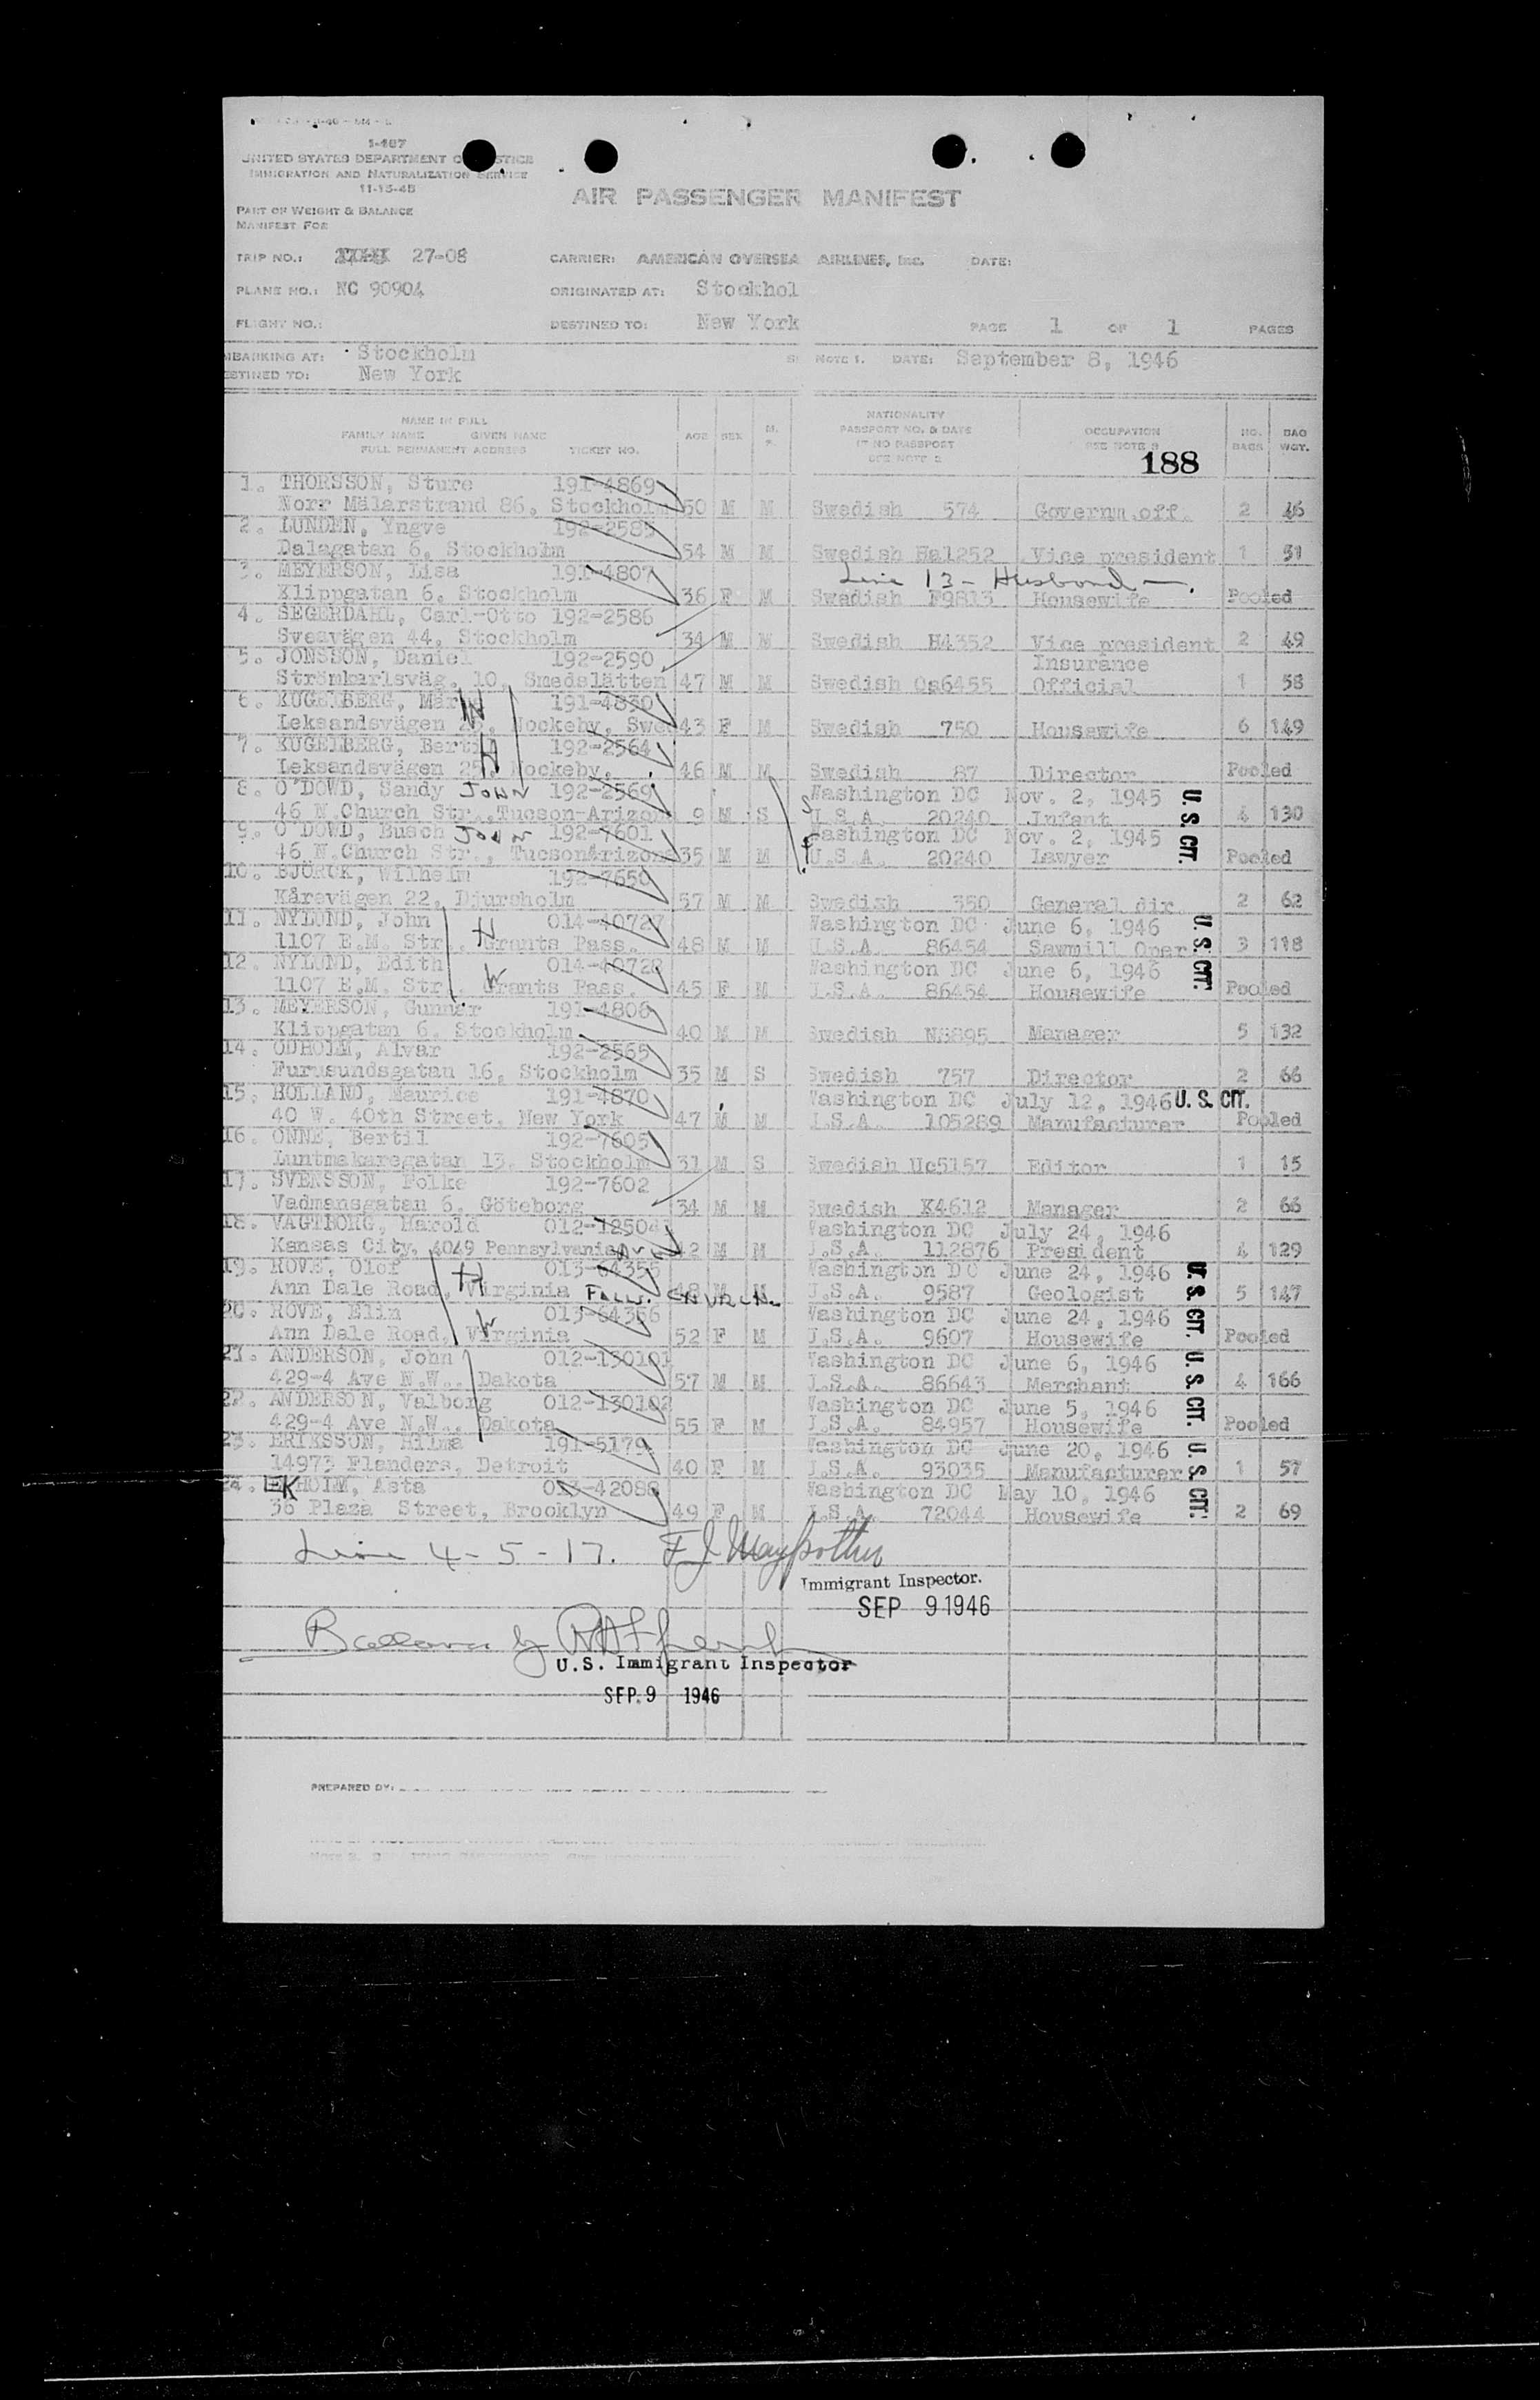 1-487
UNITED STATES DEPARTMENT OF JUSTICE
IMMIGRATION AND NATURALIZATION SERVICE
11-15-45
AIR PASSENGER MANIFEST
PART OF WEIGHT & BALANCE
MANIFEST FOR
TRIP NO.: 27-08 CARRIER: AMERICAN OVERSEA AIRLINES, INC. DATE:
PLANE NO.: NC 90904 ORIGINATED AT: Stockhol
FLIGHT NO.: DESTINED TO: New York PAGE 1 OF 1 PAGES
MBARKING AT: Stockholm NOTE 1. DATE: September 8, 1946
ESTINED TO: New York
NAME IN FULL
FAMILY NAME GIVEN NAME
FULL PERMANENT ADDRESS TICKET NO. AGE SEX M. NATIONALITY
PASSPORT NO. & DATE
IF NO PASSPORT
SEE NOTE 2 OCCUPATION
SEE NOTE 3 NO. BAGS BAG WGT.
188
1. THORSSON, Sture 191-4869
Norr Mälarstrand 86, Stockholm 50 M M Swedish 574 Governm.off. 2 46
2. LUNDEN, Yngve 192-2585
Dalagatan 6, Stockholm 54 M M Swedish Ha1252 Vice president 1 51
3. MEYERSON, Lisa 191-4807 Line 13 - Husband
Klippgatan 6, Stockholm 36 F M Swedish F9813 Housewife Pooled
4. SEGERDAHL, Carl-Otto 192-2586
Sveavägen 44, Stockholm 34 M M Swedish H4352 Vice president 2 49
5. JONSSON, Daniel 192-2590 Insurance
Strömkarlsväg. 10, Smedslätten 47 M M Swedish Os6455 Official 1 58
6. KUGELBERG, Mär W 191-4830
Leksandsvägen 25, Nockeby, Swe 43 F M Swedish 750 Housewife 6 149
7. KUGELBERG, Bertil H 192-2564
Leksandsvägen 25, Nockeby, 46 M M Swedish 87 Director Pooled
8. O'DOWD, Sandy JOHN 192-2569 Washington DC Nov. 2, 1945
46 N.Church Str., Tucson-Arizona 9 M S U.S.A. 20240 Infant U.S. CIT. 4 130
9. O'DOWD, Busch JOHN 192-7601 Washington DC Nov. 2, 1945
46 N.Church Str., TucsonArizona 35 M M U.S.A. 20240 Lawyer Pooled
10. BJÖRCK, Wilhelm 192-7650
Kårevägen 22, Djursholm 57 M M Swedish 350 General dir. 2 62
11. NYLUND, John H 014-40727 Washington DC June 6, 1946
1107 E.M. Str., Grants Pass. 48 M M U.S.A. 86454 Sawmill Oper U.S. CIT. 3 118
12. NYLUND, Edith W 014-40728 Washington DC June 6, 1946
1107 E.M. Str., Grants Pass. 45 F M U.S.A. 86454 Housewife Pooled
13. MEYERSON, Gunnar 191-4806
Klippgatan 6, Stockholm 40 M M Swedish N3895 Manager 5 132
14. ODHOLM, Alvar 192-2565
Furusundsgatan 16, Stockholm 35 M S Swedish 757 Director 2 66
15. HOLLAND, Maurice 191-4870 Washington DC July 12, 1946 U.S. CIT.
40 W. 40th Street, New York 47 M M U.S.A. 105289 Manufacturer Pooled
16. ONNE, Bertil 192-7605
Luntmakaregatan 13, Stockholm 31 M S Swedish Uc5157 Editor 1 15
17. SVENSSON, Folke 192-7602
Vadmansgatan 6, Göteborg 34 M M Swedish K4612 Manager 2 66
18. VAGTBORG, Harold 012-125041 Washington DC July 24, 1946
Kansas City, 4049 Pennsylvania Ave 42 M M U.S.A. 112876 President 4 129
19. ROVE, Olof H 013-64355 Washington DC June 24, 1946
Ann Dale Road, Virginia FALLS CHURCH 48 M M U.S.A. 9587 Geologist U.S. CIT. 5 147
20. ROVE, Elin W 013-64356 Washington DC June 24, 1946
Ann Dale Road, Virginia 52 F M U.S.A. 9607 Housewife Pooled
21. ANDERSON, John 012-130101 Washington DC June 6, 1946
429-4 Ave N.W., Dakota 57 M M U.S.A. 86643 Merchant U.S. CIT. 4 166
22. ANDERSON, Valborg 012-130102 Washington DC June 5, 1946
429-4 Ave N.W., Dakota 55 F M U.S.A. 84957 Housewife Pooled
23. ERIKSSON, Hilma 191-5179 Washington DC June 20, 1946
14973 Flanders, Detroit 40 F M U.S.A. 93035 Manufacturer U.S. CIT. 1 57
24. EKHOLM, Asta 013-42088 Washington DC May 10, 1946
36 Plaza Street, Brooklyn 49 F M U.S.A. 72044 Housewife 2 69
Line 4-5-17.
Immigrant Inspector.
SEP 9 1946
Balance by
U.S. Immigrant Inspector
SEP. 9 1946
PREPARED BY: